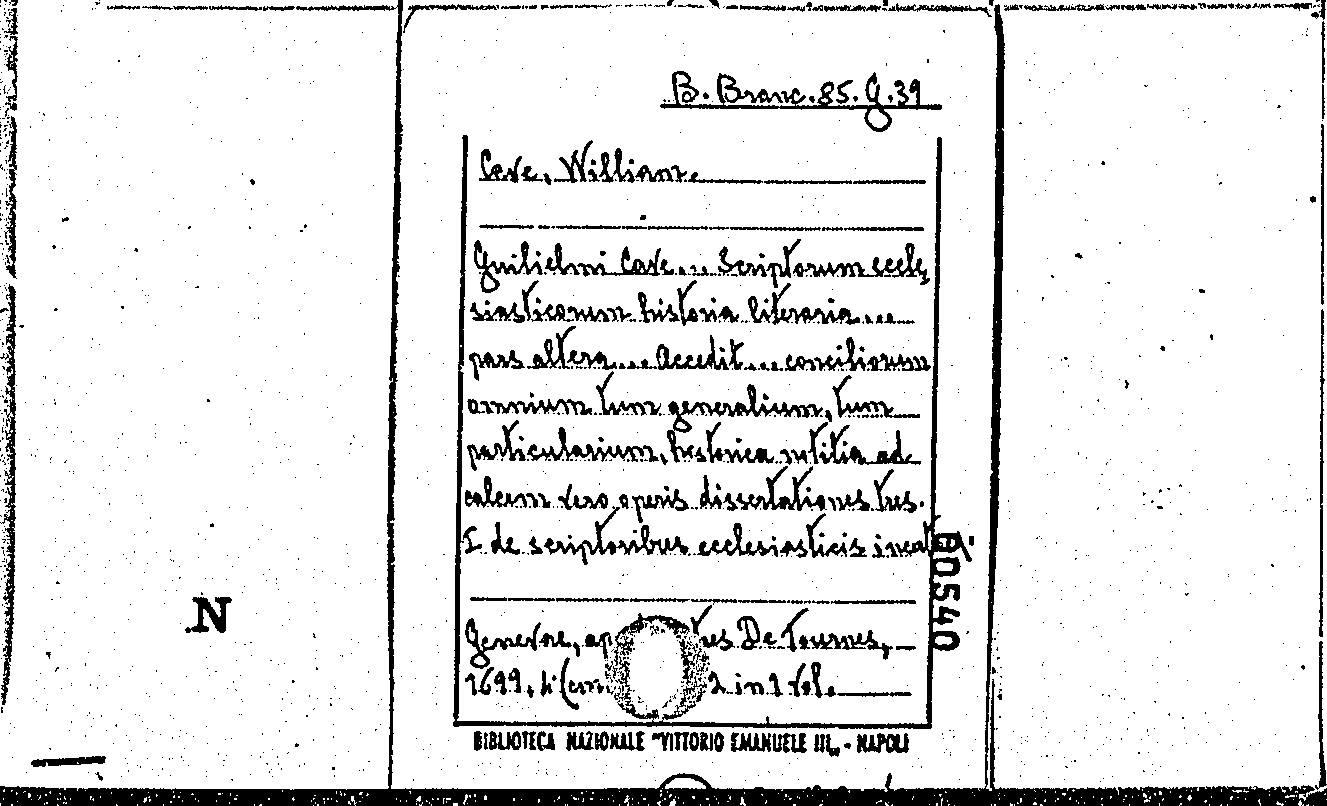 B. Branc. 85. G. 39
Cave, William.
Guilielmi Cave... Scriptorum eccle,
siasticorum historia literaria...
pars altera... Accedit... conciliorum
omnium tum generalium, tum
particularium, historica notitia ad
calcem vero operis dissertationes tres.
I de scriptoribus ecclesiasticis
00540
N
Genevae, De Tournes,
1699, 2 in 1 vol.
BIBLIOTECA NAZIONALE "VITTORIO EMANUELE III„ - NAPOLI